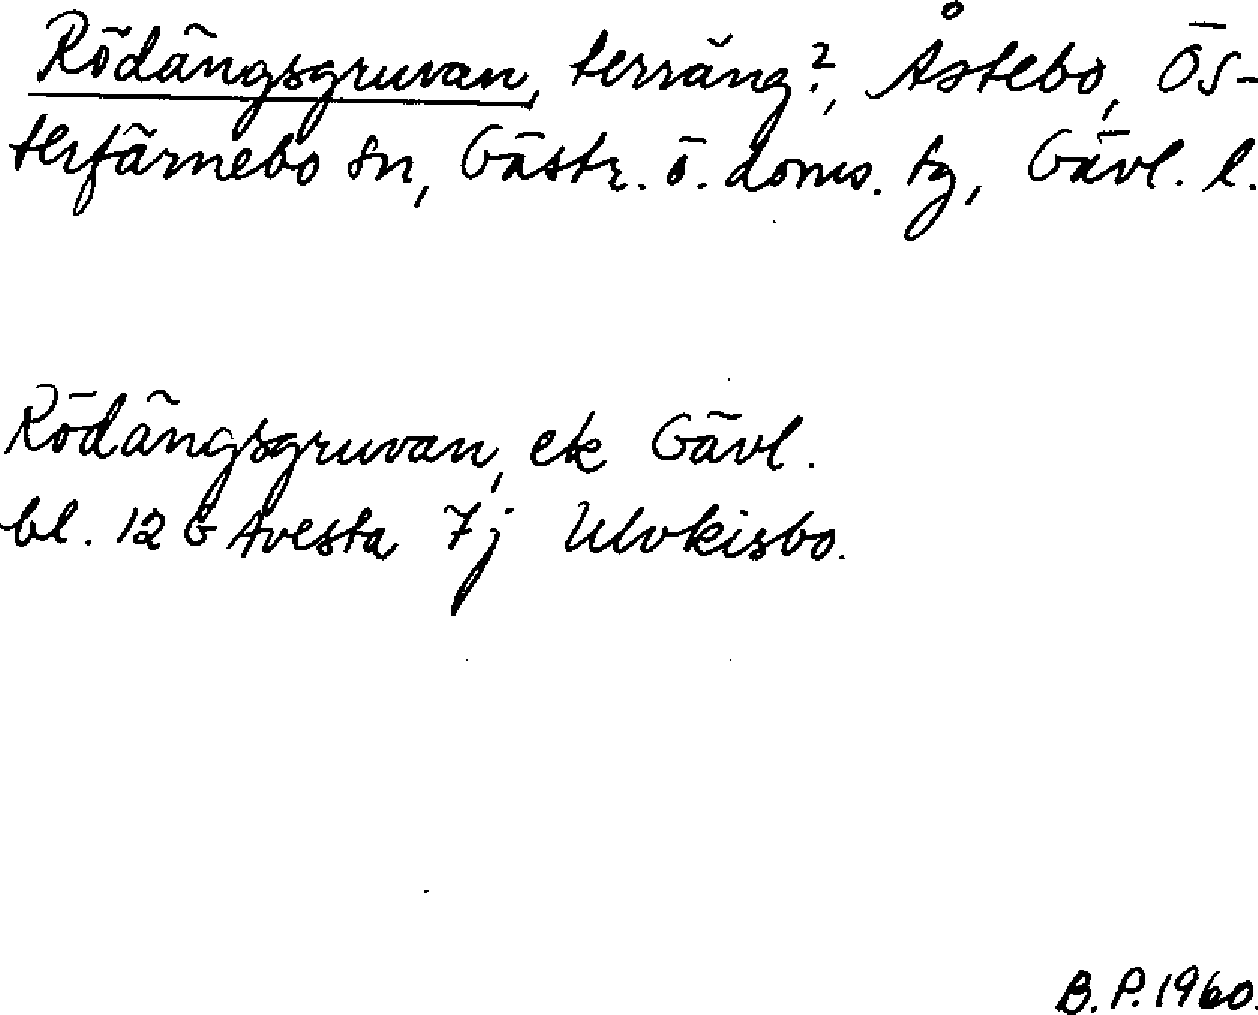 Rödängsgruvan, terräng?, Åstebo, Ös-
terfärnebo sn, Gästr. ö. doms. tg, Gävl. l.
Rödängsgruvan, ek Gävl.
bl. 12 G Avesta 7j Ulvkisbo.
B.P. 1960.